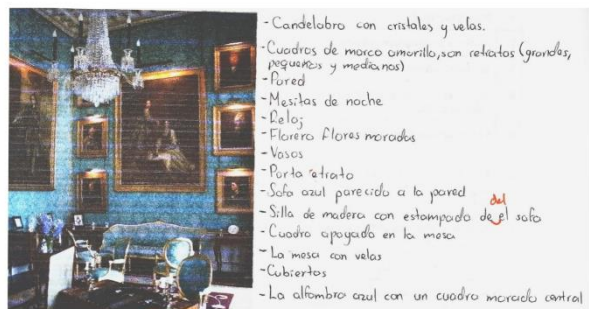 - Candelabro con cristales y velas.
- Cuadros de marco amarillo, son retratos (grandes,
pequeños y medianos)
- Pared
- Mesitas de noche
- Reloj
- Florero flores moradas
- Vasos
- Porta retrato
- Sofa azul parecido a la pared
del
- Silla de madera con estampado de el sofa
- Cuadro apoyado en la mesa
- La mesa con velas
- Cubiertos
- La alfombra azul con un cuadro morado central